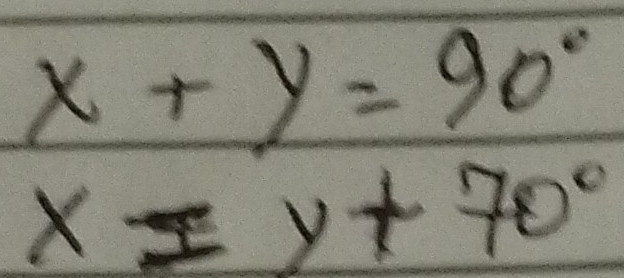 x + y = 90°
x = y + 70°